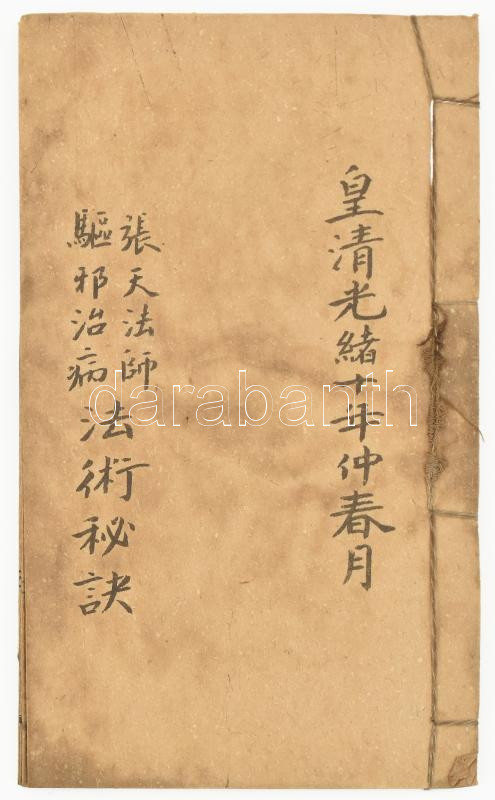 皇清光緒十年仲春月
張天法師
驅邪治病
法術秘訣
darabanth